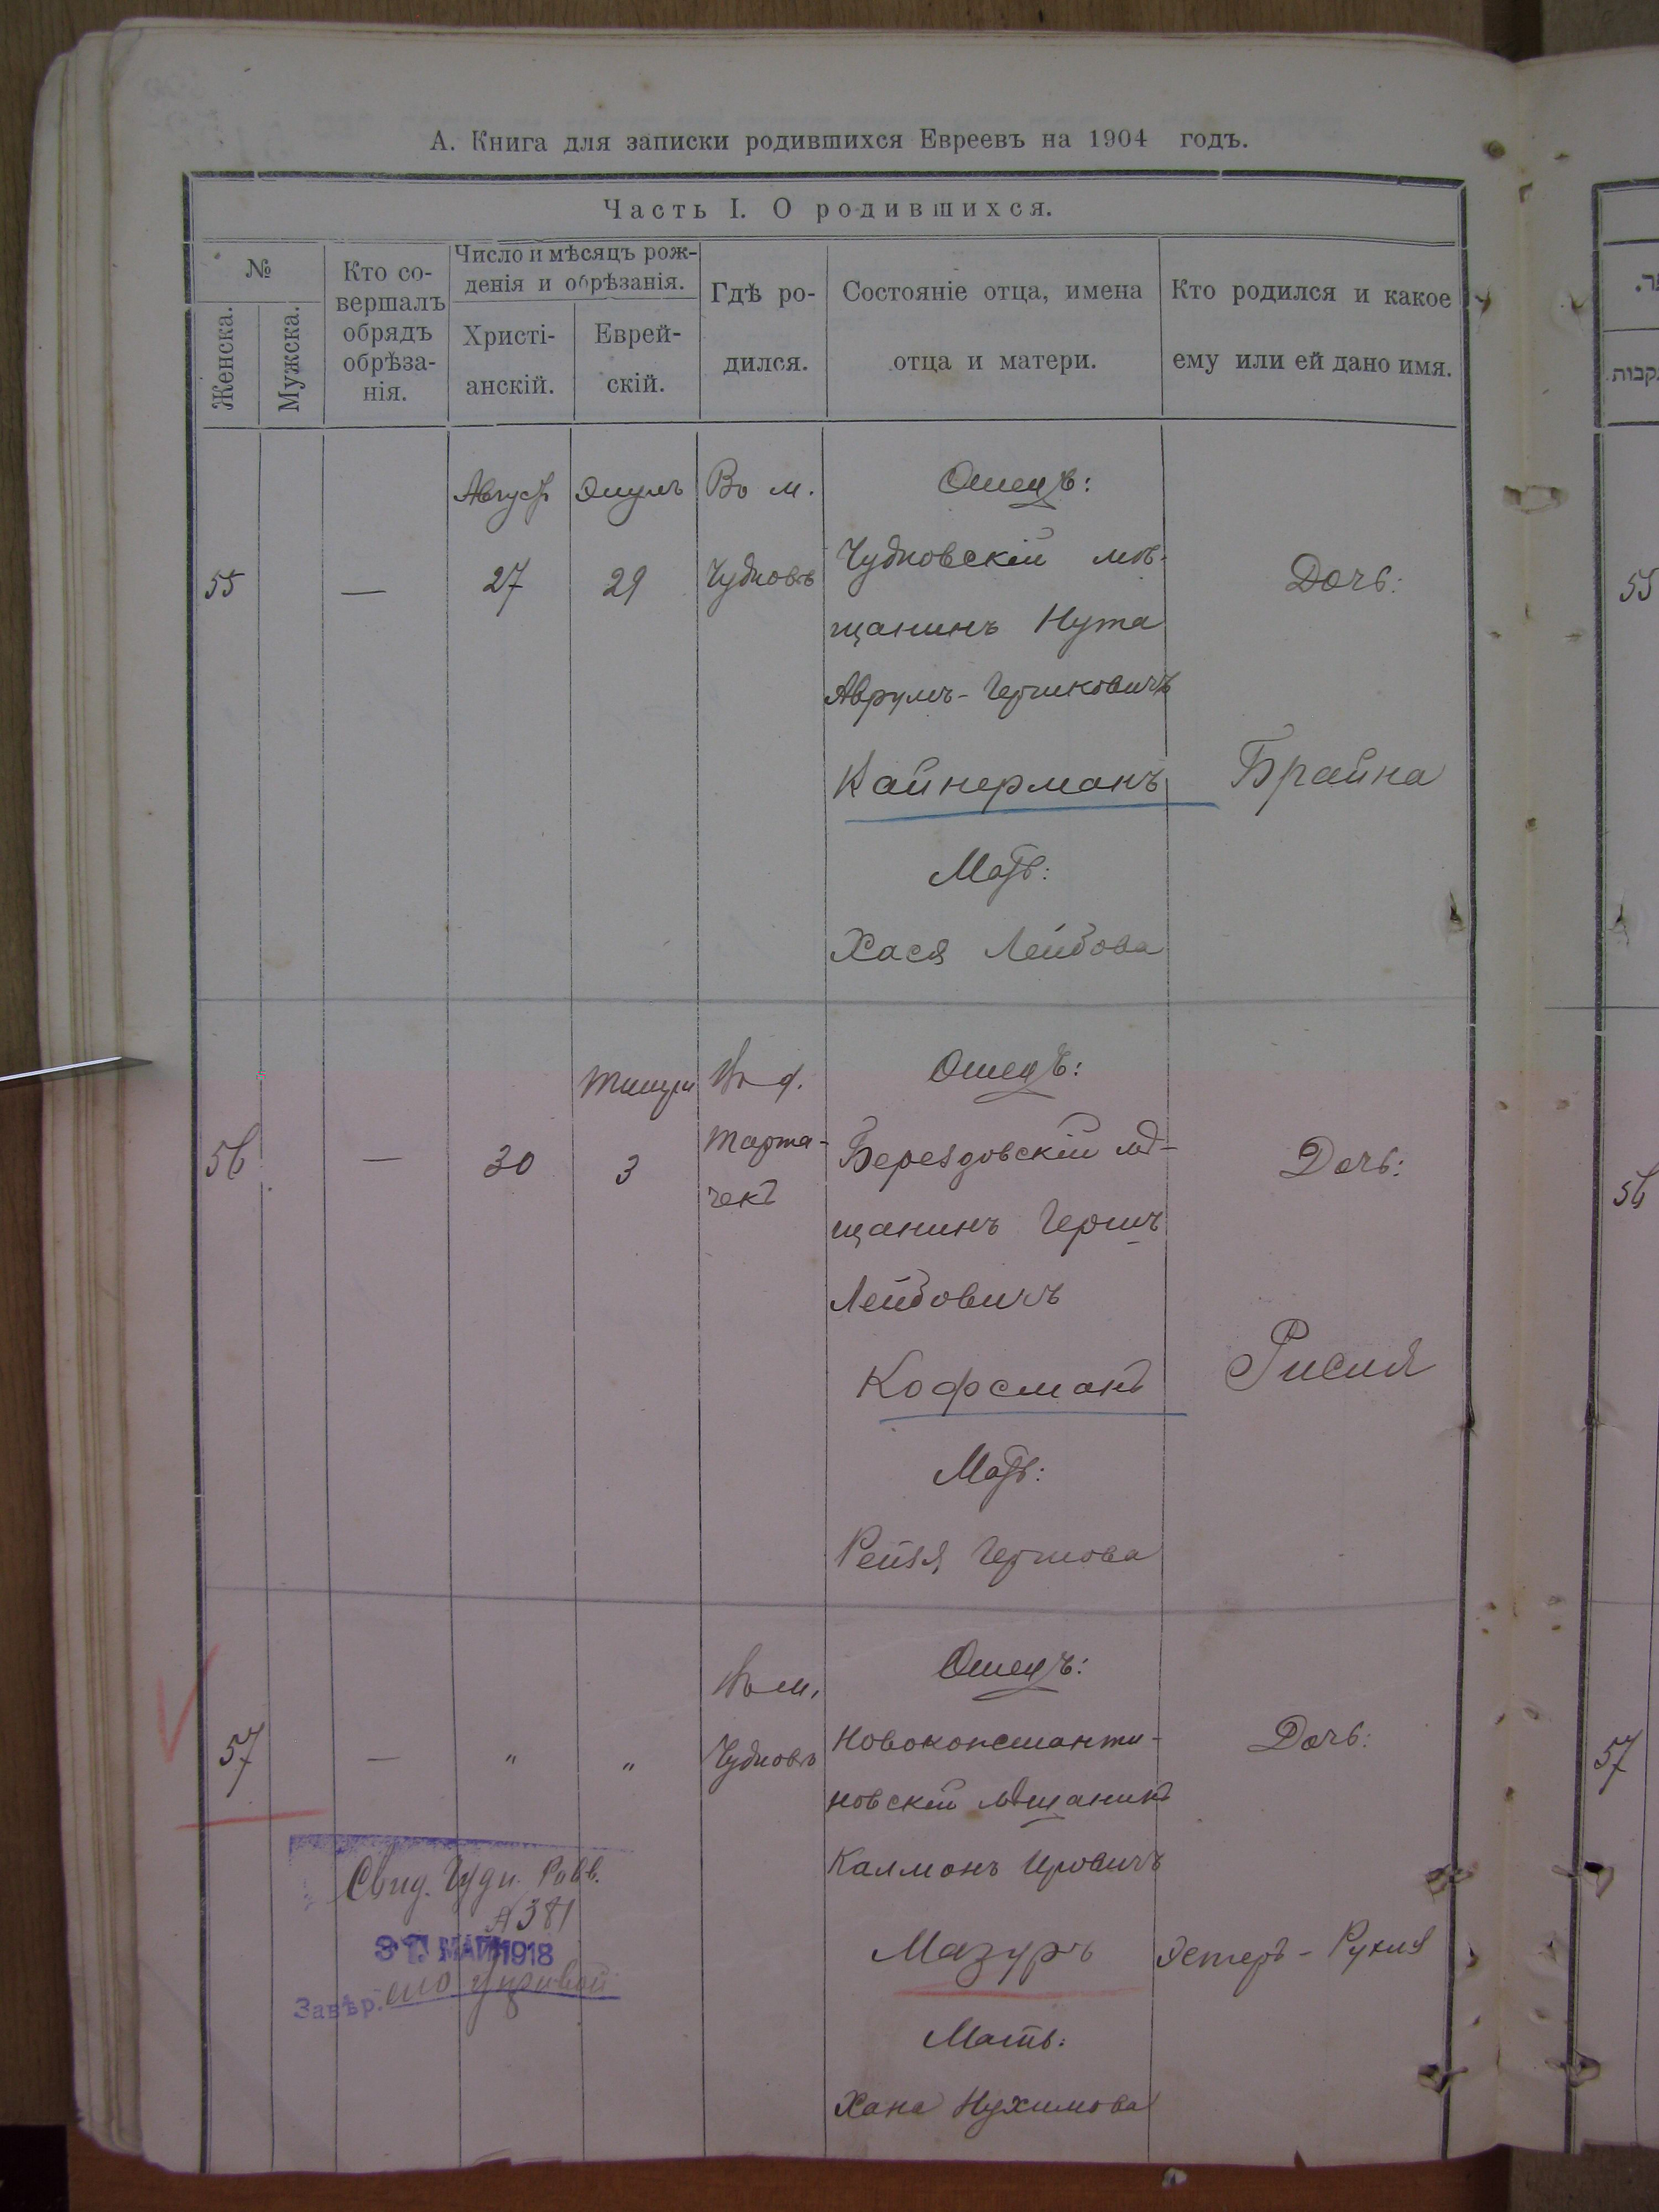 А. Книга для записки родившихся Евреевъ на 1904 годъ.
Часть I. О родившихся.
№
Женска.
Мужска.
Кто со-
вершалъ
обрядъ
обрѣза-
нія.
Число и мѣсяцъ рож-
денія и обрѣзанія.
Христі-
анскій.
Еврей-
скій.
Гдѣ ро-
дился.
Состояніе отца, имена
отца и матери.
Кто родился и какое
ему или ей дано имя.
55
—
Август
27
Элулъ
29
Въ м.
Чудновъ
Отецъ:
Чудновскій мѣ-
щанинъ Нута
Аврумъ-Гершковичъ
Кайнерманъ
Мать:
Хася Лейбова
Дочь:
Брайна
56
—
30
Тишри
3
Въ д.
Тарта-
чекъ
Отецъ:
Березdовскій мѣ-
щанинъ Гершъ
Лейбовичъ
Кофсманъ
Мать:
Рейзя Гершова
Дочь:
Рисия
57
—
"
"
Въ м.
Чудновъ
Отецъ:
Новоконстанти-
новскій мѣщанинъ
Калмонъ Ицковичъ
Мазуръ
Мать:
Хана Нухимова
Дочь:
Эстеръ-Рухля
Свид. Чудн. Равв.
№ 381
31 МАЙ 1918
Завѣр.
קבות
55
56
57